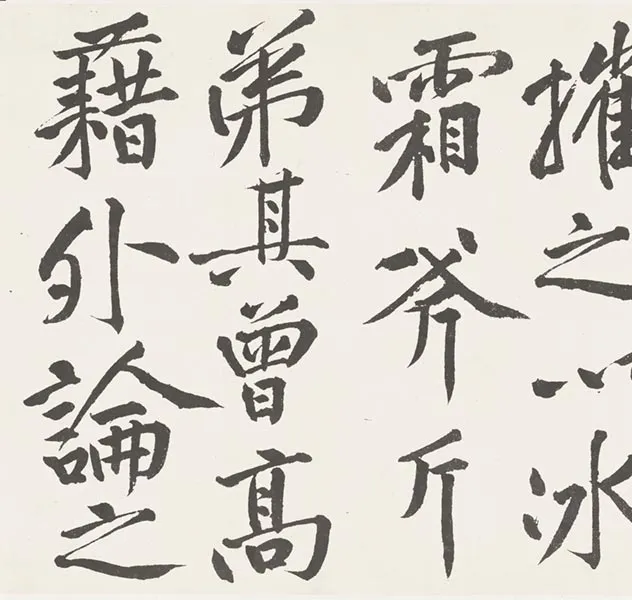 摧之以冰
霜斧斤
弟其曾高
藉外論之